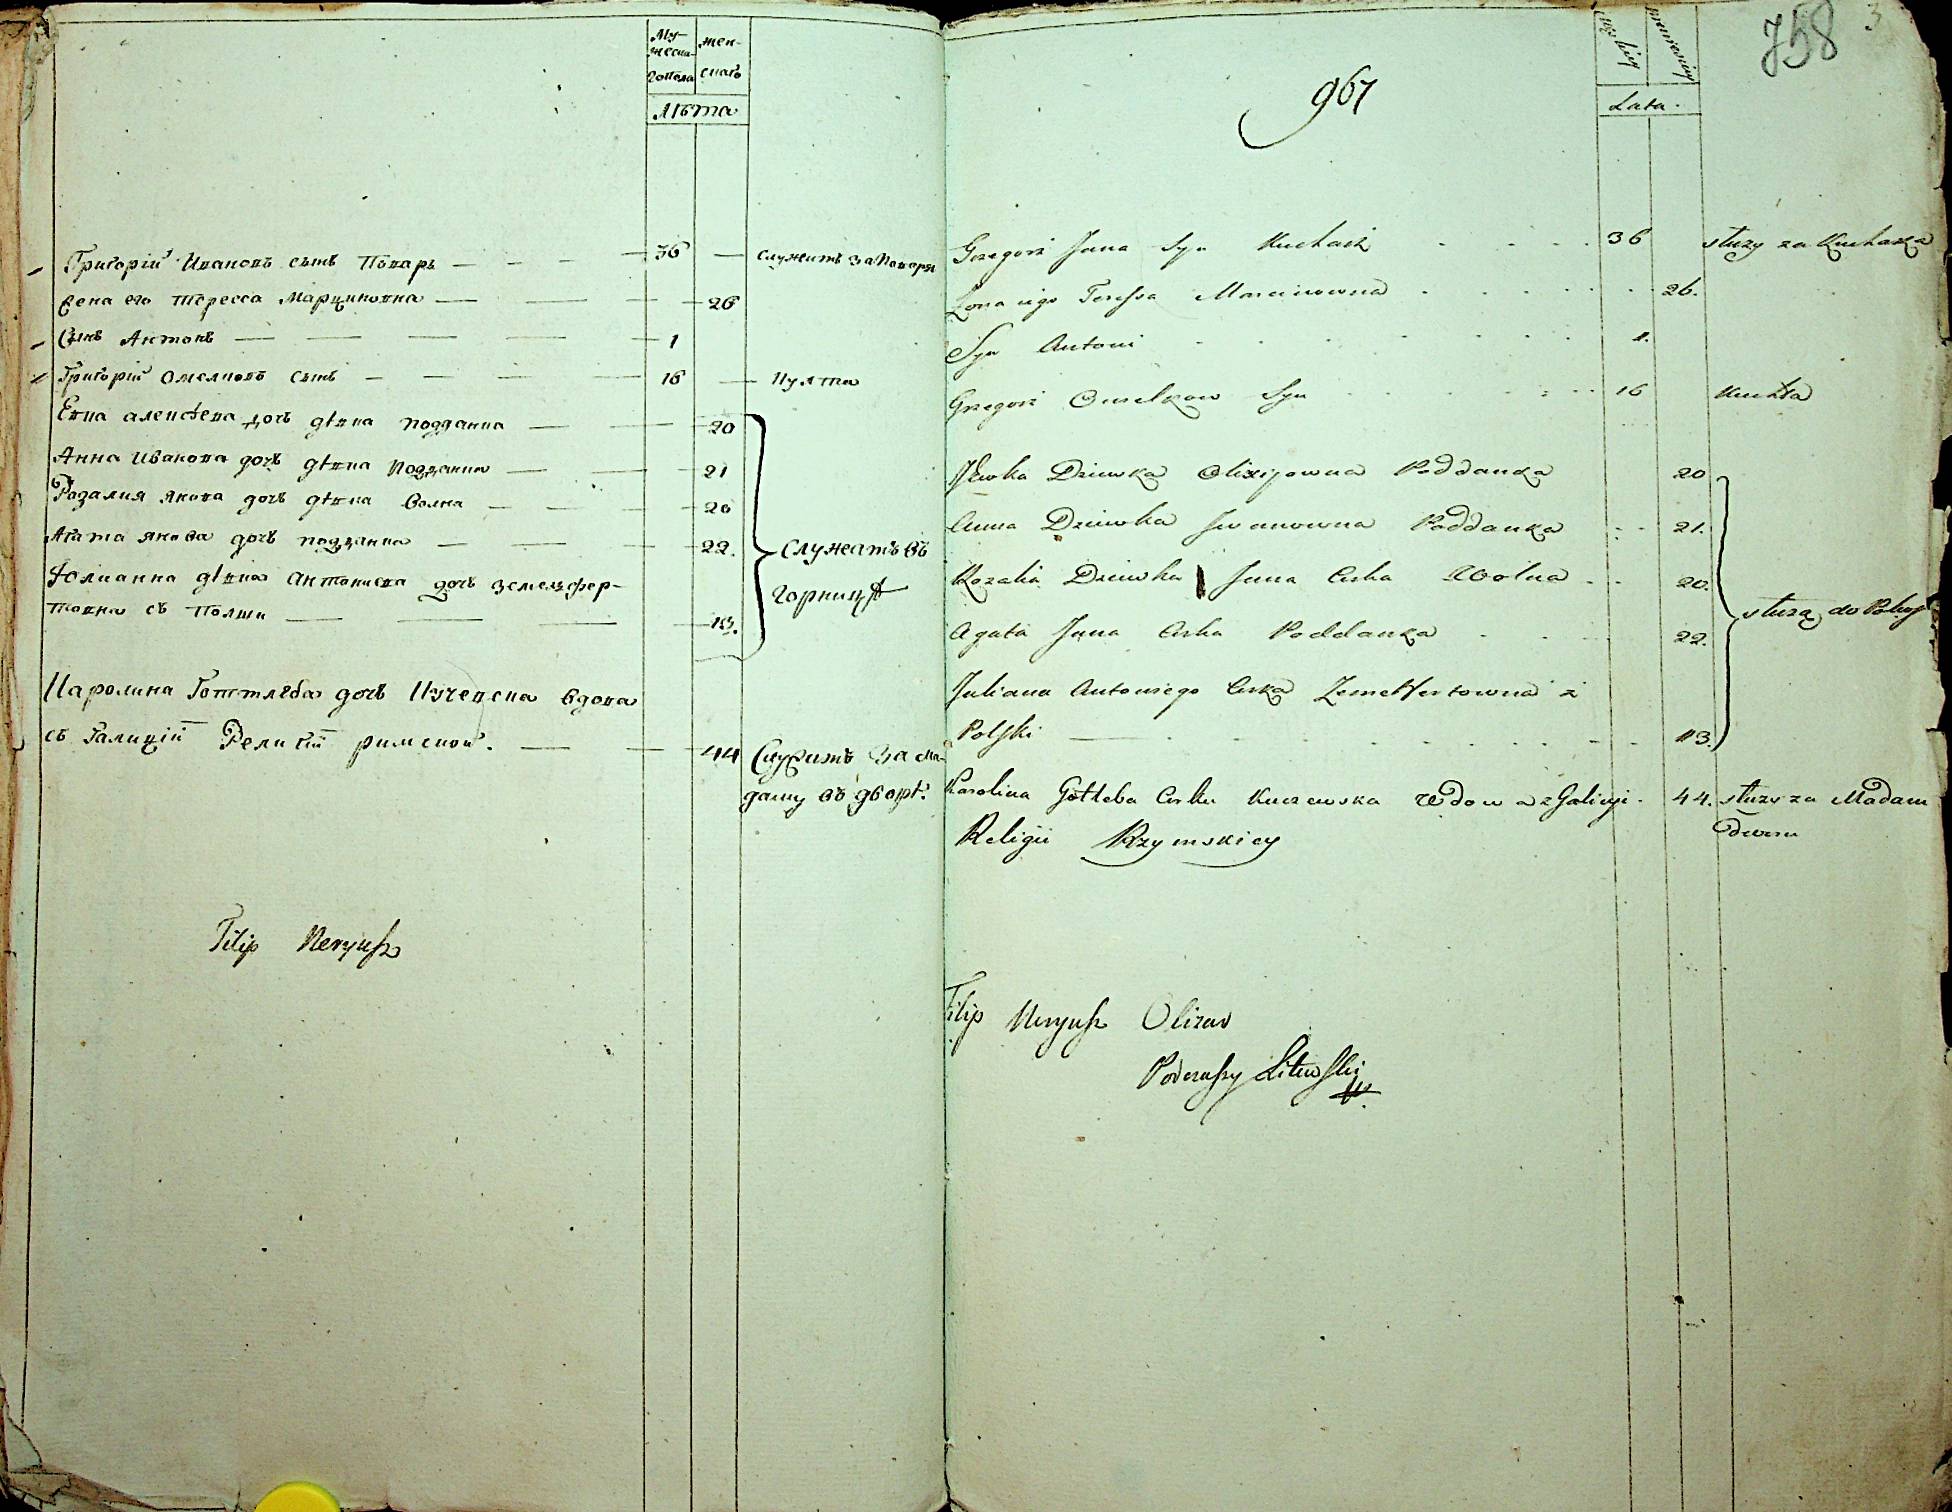 Му-
жеска-
гопола
жен-
скаго
Лѣта
Григорій Ивановъ сынъ Поваръ — — — — 36 — служитъ за Поворя
Жена его Тересса Марциновна — — — — 26
Сынъ Антонъ — — — — — 1
Григорій Омелковъ сынъ — — — — 16 — Кухта
Евка алексѣева дочь дѣвка подданка — — 20
Анна Иванова дочь дѣвка Подданка — — 21
Розалия Якова дочь дѣвка Волна — — — 20
Агата Якова дочь подданка — — — 22.
Служатъ въ
горницѣ
Юлианна дѣвка Антониева дочь земелфер-
товна съ Полши — — — 13.
Каролина Готтлеба дочь Кучевска вдова
съ Галиціи Религіи римской. — — 44
Служитъ за ма-
даму въ дворѣ.
Filip Neryusz
758
3
967
Męskiey
Lata.
Grzegorz Jana Syn Kucharz 36 służy za Kucharza
Żona iego Teressa Marcinowna 26.
Syn Antoni 1.
Grzegorz Omelkow Syn 16 Kuchta
Jewka Dziewka Olixijowna Poddanka 20
Anna Dziewka Jwanowna Poddanka 21.
Rozalia Dziewka Jana Curka Wolna 20.
Agata Jana Curka Poddanka 22.
służą do Pokoju
Juliana Antoniego Curka Zemelfertowna z
Polski 13.
Karolina Gottleba Curka Kuczewska wdowa z Galicyi. 44. służy za Madam
Religii Rzymskiey
Filip Neryusz Olizar
Podczaszy Litewski